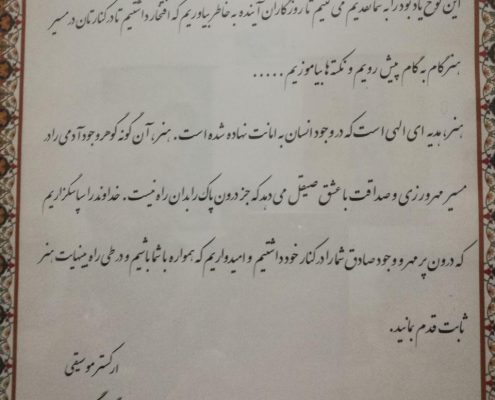 این لوح یادبود را به شما تقدیم می کنیم تا روزگاران آینده به خاطر بیاوریم که افتخار داشتیم تا در کنارتان در مسیر
هنر گام به گام پیش رویم و نکته ها بیاموزیم .....
هنر، هدیه ای الهی است که در وجود انسان به امانت نهاده شده است. هنر، آن گونه گوهر وجود آدمی را در
مسیر مهرورزی و صداقت با عشق صیقل می دهد که جز درون پاک را بدان راه نیست. خداوند را سپاسگزاریم
که درون پر مهر و وجود صادق شما را در کنار خود داشتیم و امیدواریم که همواره با شما باشیم و در طی راه بینهایت هنر
ثابت قدم بمانید.
ارکستر موسیقی